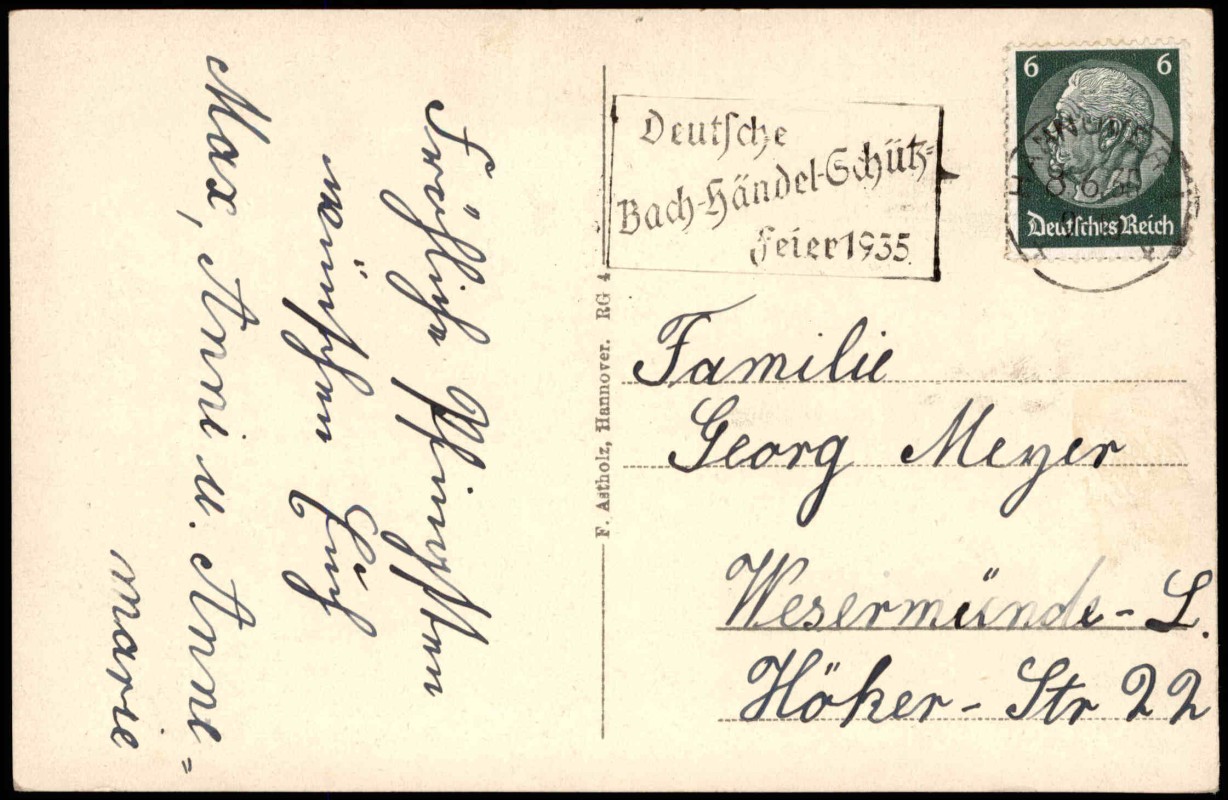 Fröhliche Pfingsten
wünschen Euch
Max, Anni u. Anne=
marie
F. Astholz, Hannover. RG 4
Deutsche
Bach-Händel-Schütz=
Feier 1935
6 6
HANNOVER
8.6.35
Deutsches Reich
Familie
Georg Meyer
Wesermünde-L.
Höker-Str 22